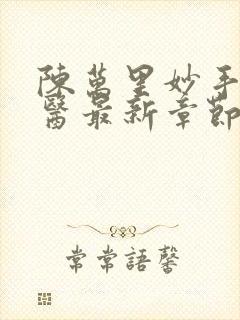 陳萬里妙手
醫最新章節
常常語馨